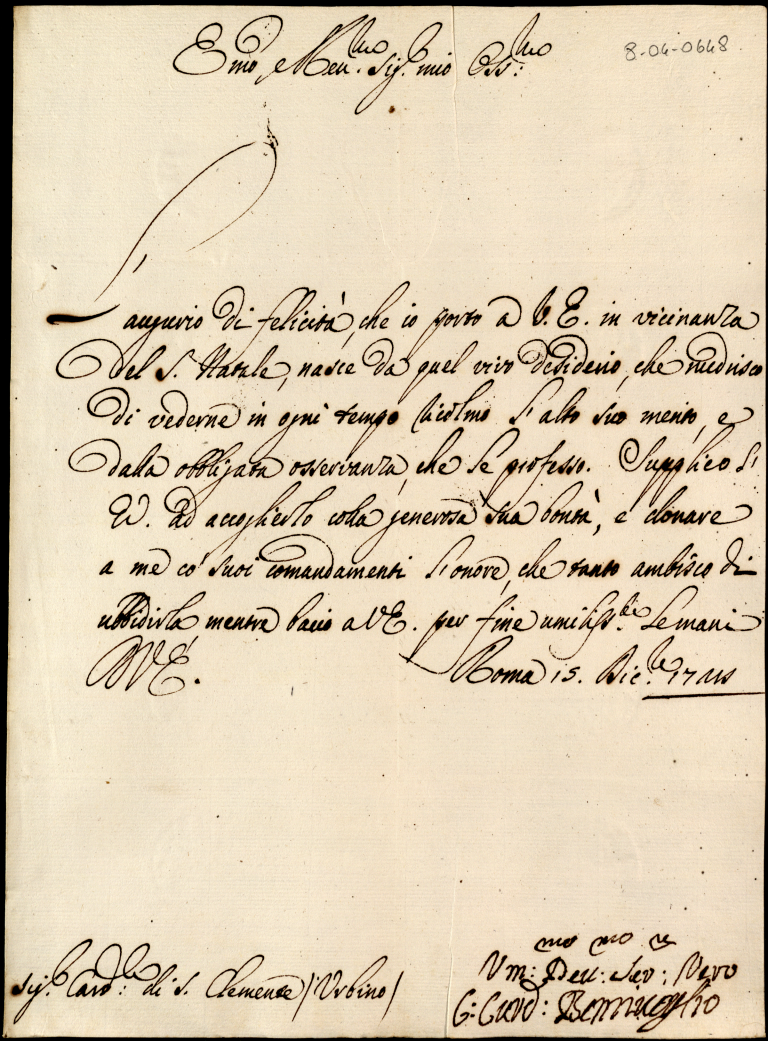 8-04-0648
Emo, e Reu.mo Sig.r mio Oss:mo
L'augurio di felicità, che io porto a V. E. in vicinanza
del S. Natale, nasce da quel vivo desiderio, che nudrisco
di vederne in ogni tempo ricolmo l'alto suo merito, e
dalla obbligata osservanza, che le professo. Supplico l'
E.V. ad accoglierlo colla generosa sua bontà, e donare
a me co' suoi comandamenti l'onore, che tanto ambisco di
ubbidirla mentre bacio a V.E. per fine umiliss.te le mani
D V.E. Roma 15. Dic.re
Sig.r Card:le di S. Clemente / Urbino /
Vm:mo Deu:mo Ser:re Vero
C: Card: Bentiuoglio